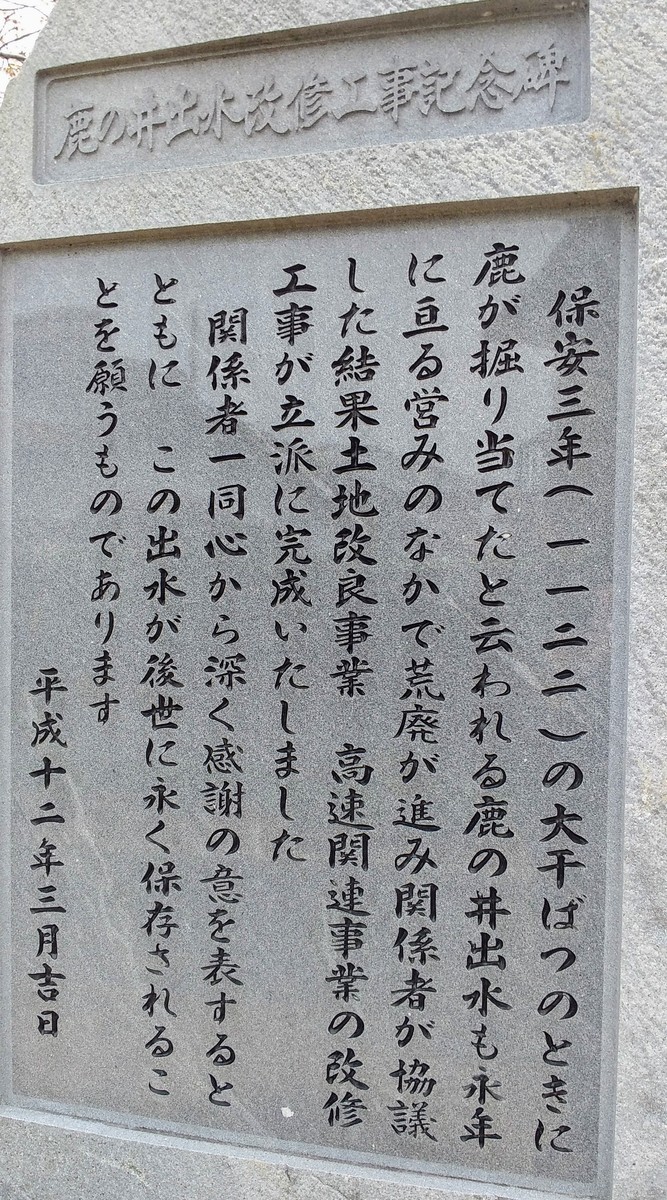 鹿の井出水改修工事記念碑
保安三年(一一二二)の大干ばつのときに
鹿が掘り当てたと云われる鹿の井出水も永年
に亘る営みのなかで荒廃が進み関係者が協議
した結果土地改良事業　高速関連事業の改修
工事が立派に完成いたしました
関係者一同心から深く感謝の意を表すると
ともに　この出水が後世に永く保存されるこ
とを願うものであります
平成十二年三月吉日